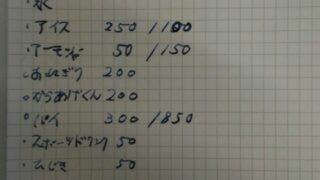 ・氷
・アイス 250 /100
・アーモンド 50 /150
・おにぎり 200
・からあげくん 200
・パイ 300 /850
・スポーツドリンク 50
・ひじき 50